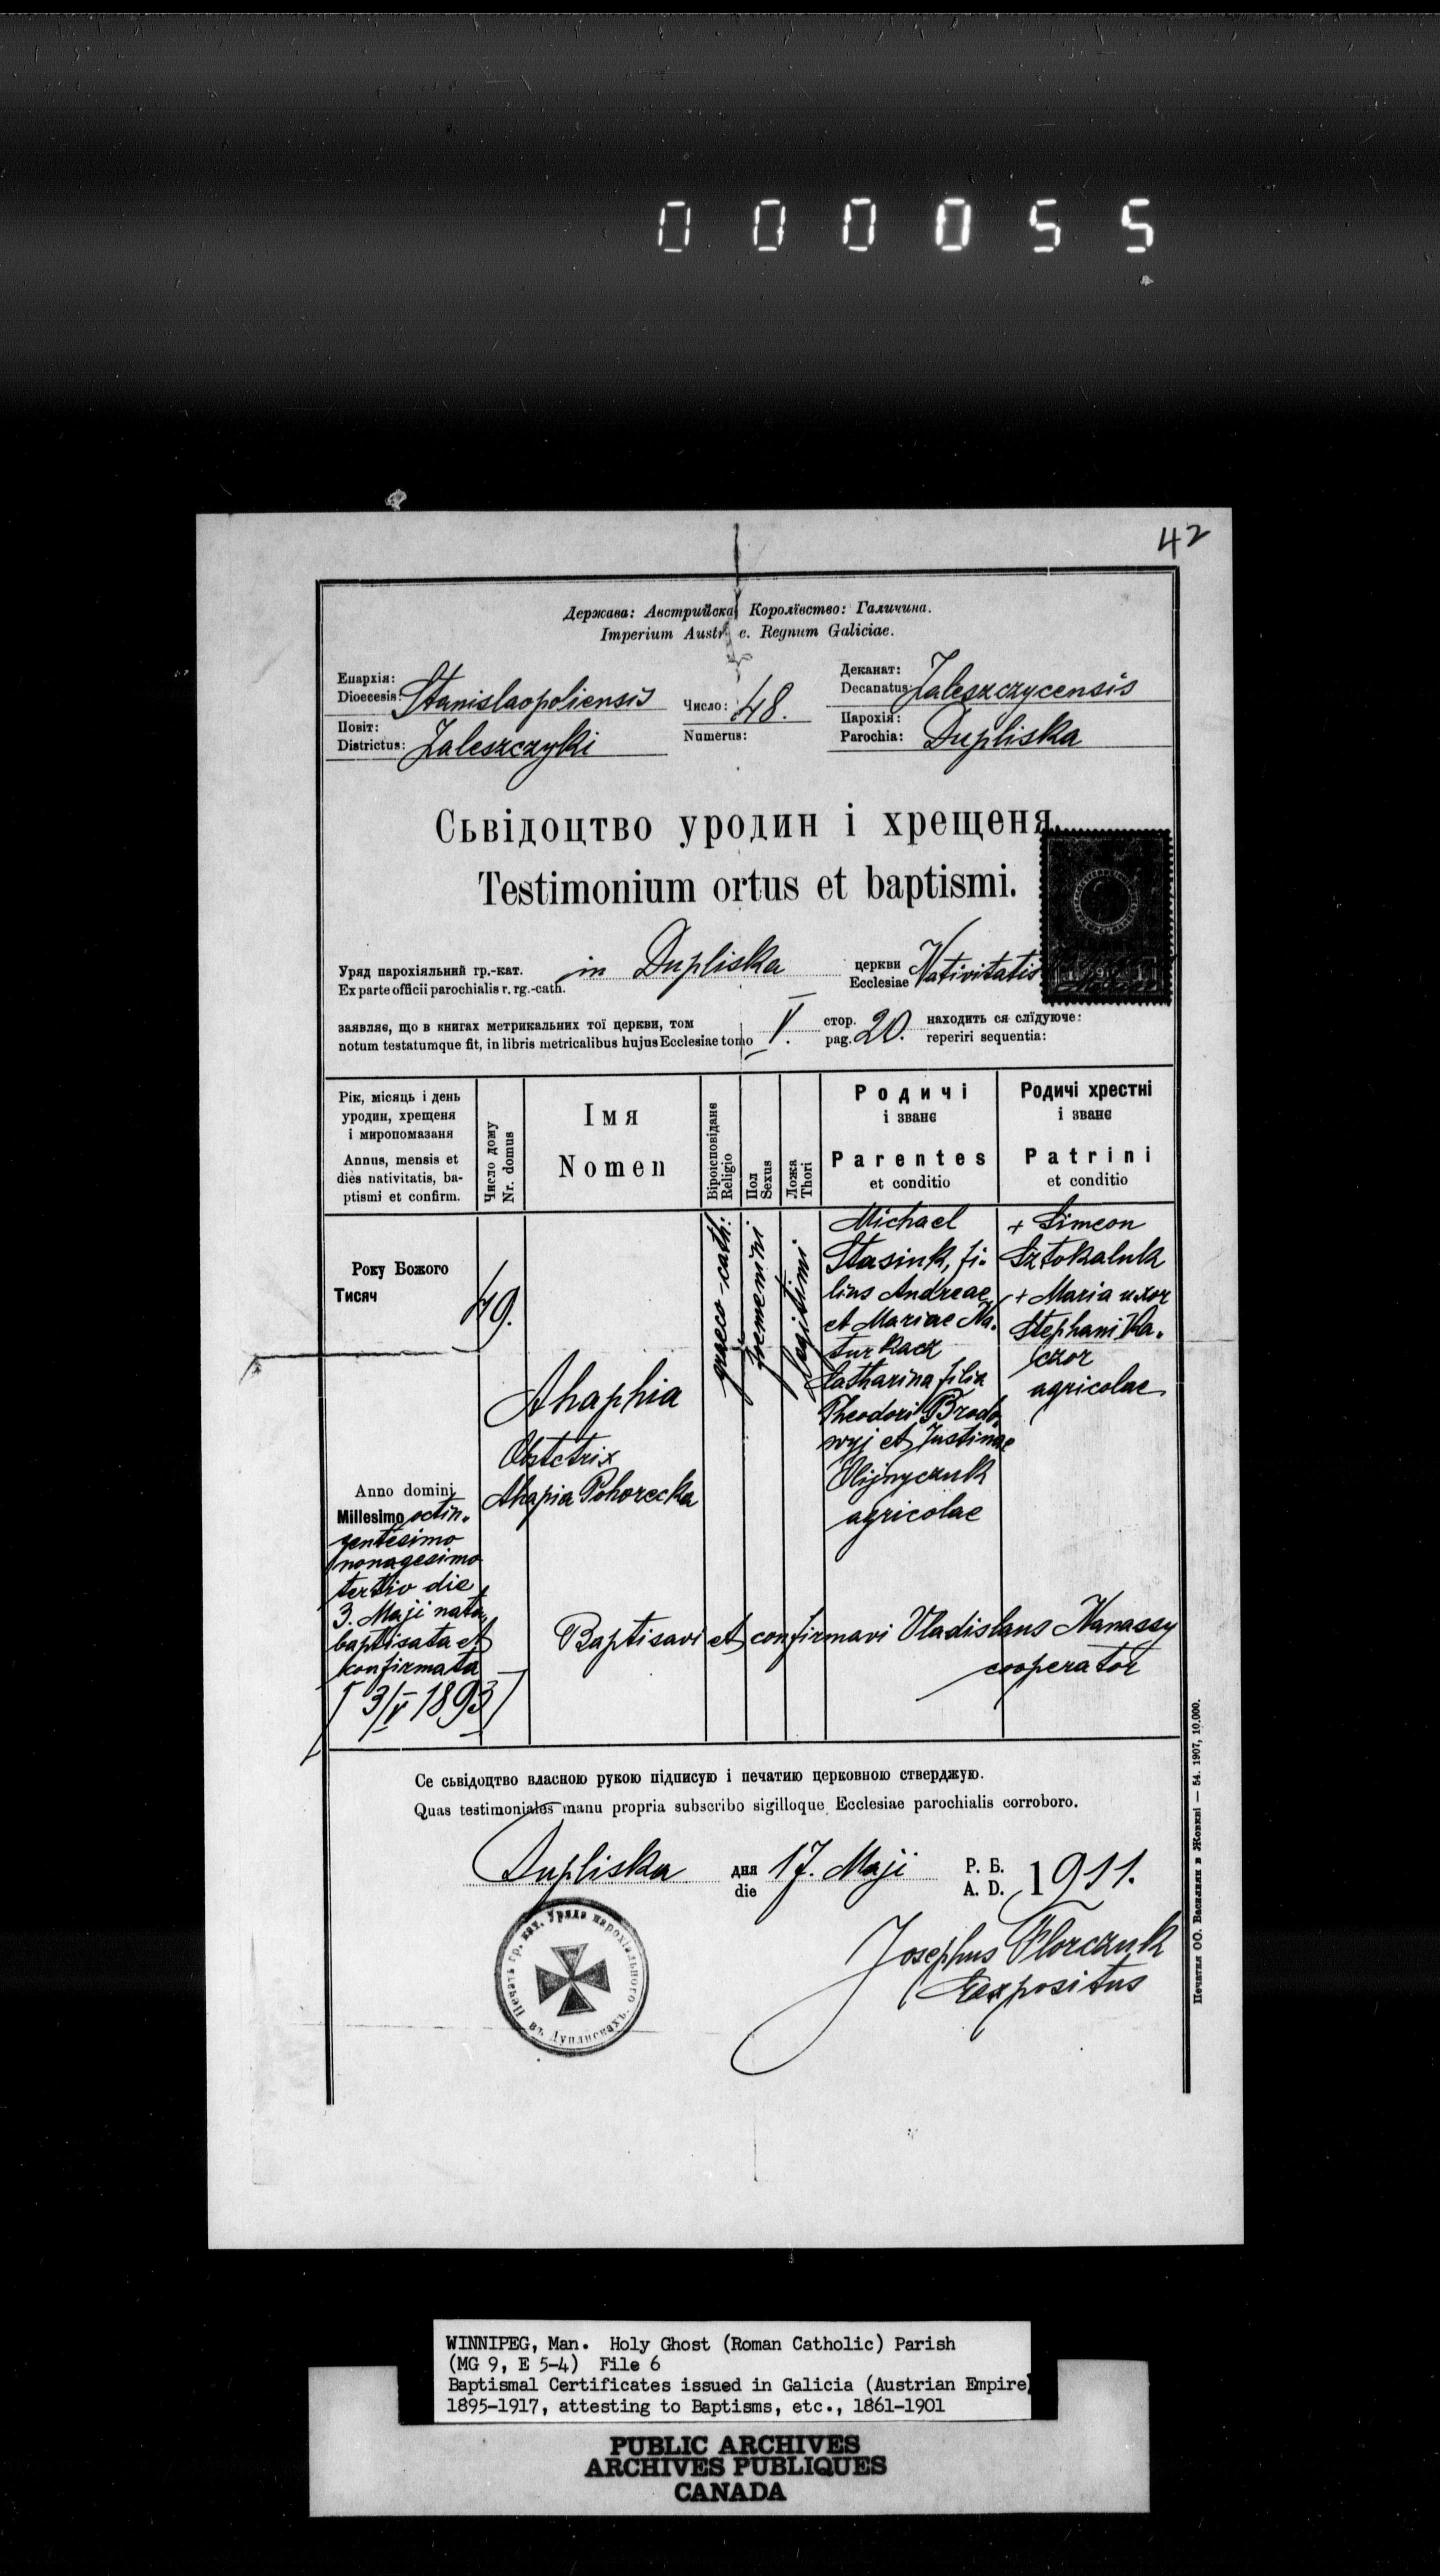 000055
42
Держава: Австрийска Королївство: Галичина.
Imperium Austr e. Regnum Galiciae.
Епархія:
Dioecesis: Stanislaopoliensis
Число: 48.
Numerus:
Деканат:
Decanatus: Zaleszczycensis
Повіт:
Districtus: Zaleszczyki
Парохія:
Parochia: Dupliska
Сьвідоцтво уродин і хрещеня.
Testimonium ortus et baptismi.
Уряд парохіяльний гр.-кат.
Ex parte officii parochialis r. rg.-cath. in Dupliska
церкви
Ecclesiae Nativitatis
заявляє, що в книгах метрикальних тої церкви, том
notum testatumque fit, in libris metricalibus hujus Ecclesiae tomo V.
стор.
pag. 20.
находить ся слїдуюче:
reperiri sequentia:
Рік, місяць і день
уродин, хрещеня
і миропомазаня
Annus, mensis et
dies nativitatis, ba-
ptismi et confirm.
Число дому
Nr. domus
Імя
Nomen
Віроісповіданє
Religio
Пол
Sexus
Ложа
Thori
Родичі
і званє
Parentes
et conditio
Родичі хрестні
і званє
Patrini
et conditio
Року Божого
Тисяч
Anno domini
Millesimo octin-
gentesimo
nonagesimo
tertio die
3. Maji nata,
baptisata et
confirmata
/ 3/V 1893 /
49.
Ahaphia
Obstetrix
Ahapia Pohorecka
graeco-cath:
foeminini
legitimi
Michael
Stasiuk, fi-
lius Andreae
et Mariae Na-
turkacz
Catharina filia
Theodori Brodo-
wyj et Justinae
Olijnyczuk
agricolae
+ Simeon
Sztokaluk
+ Maria uxor
Stephani Ka-
czor
agricolae
Baptisavi et confirmavi Vladislaus Manassy
cooperator
Се сьвідоцтво власною рукою підписую і печатию церковною стверджую.
Quas testimoniales manu propria subscribo sigilloque Ecclesiae parochialis corroboro.
Dupliska
дня
die 17. Maji
Р. Б.
A. D. 1911.
Josephus Florczuk
Expositus
Печать гр. кат. Уряда парохіяльного
въ Дуплискахъ
Печатня ОО. Василиян в Жовкві — 54. 1907, 10.000.
WINNIPEG, Man. Holy Ghost (Roman Catholic) Parish
(MG 9, E 5-4) File 6
Baptismal Certificates issued in Galicia (Austrian Empire)
1895-1917, attesting to Baptisms, etc., 1861-1901
PUBLIC ARCHIVES
ARCHIVES PUBLIQUES
CANADA